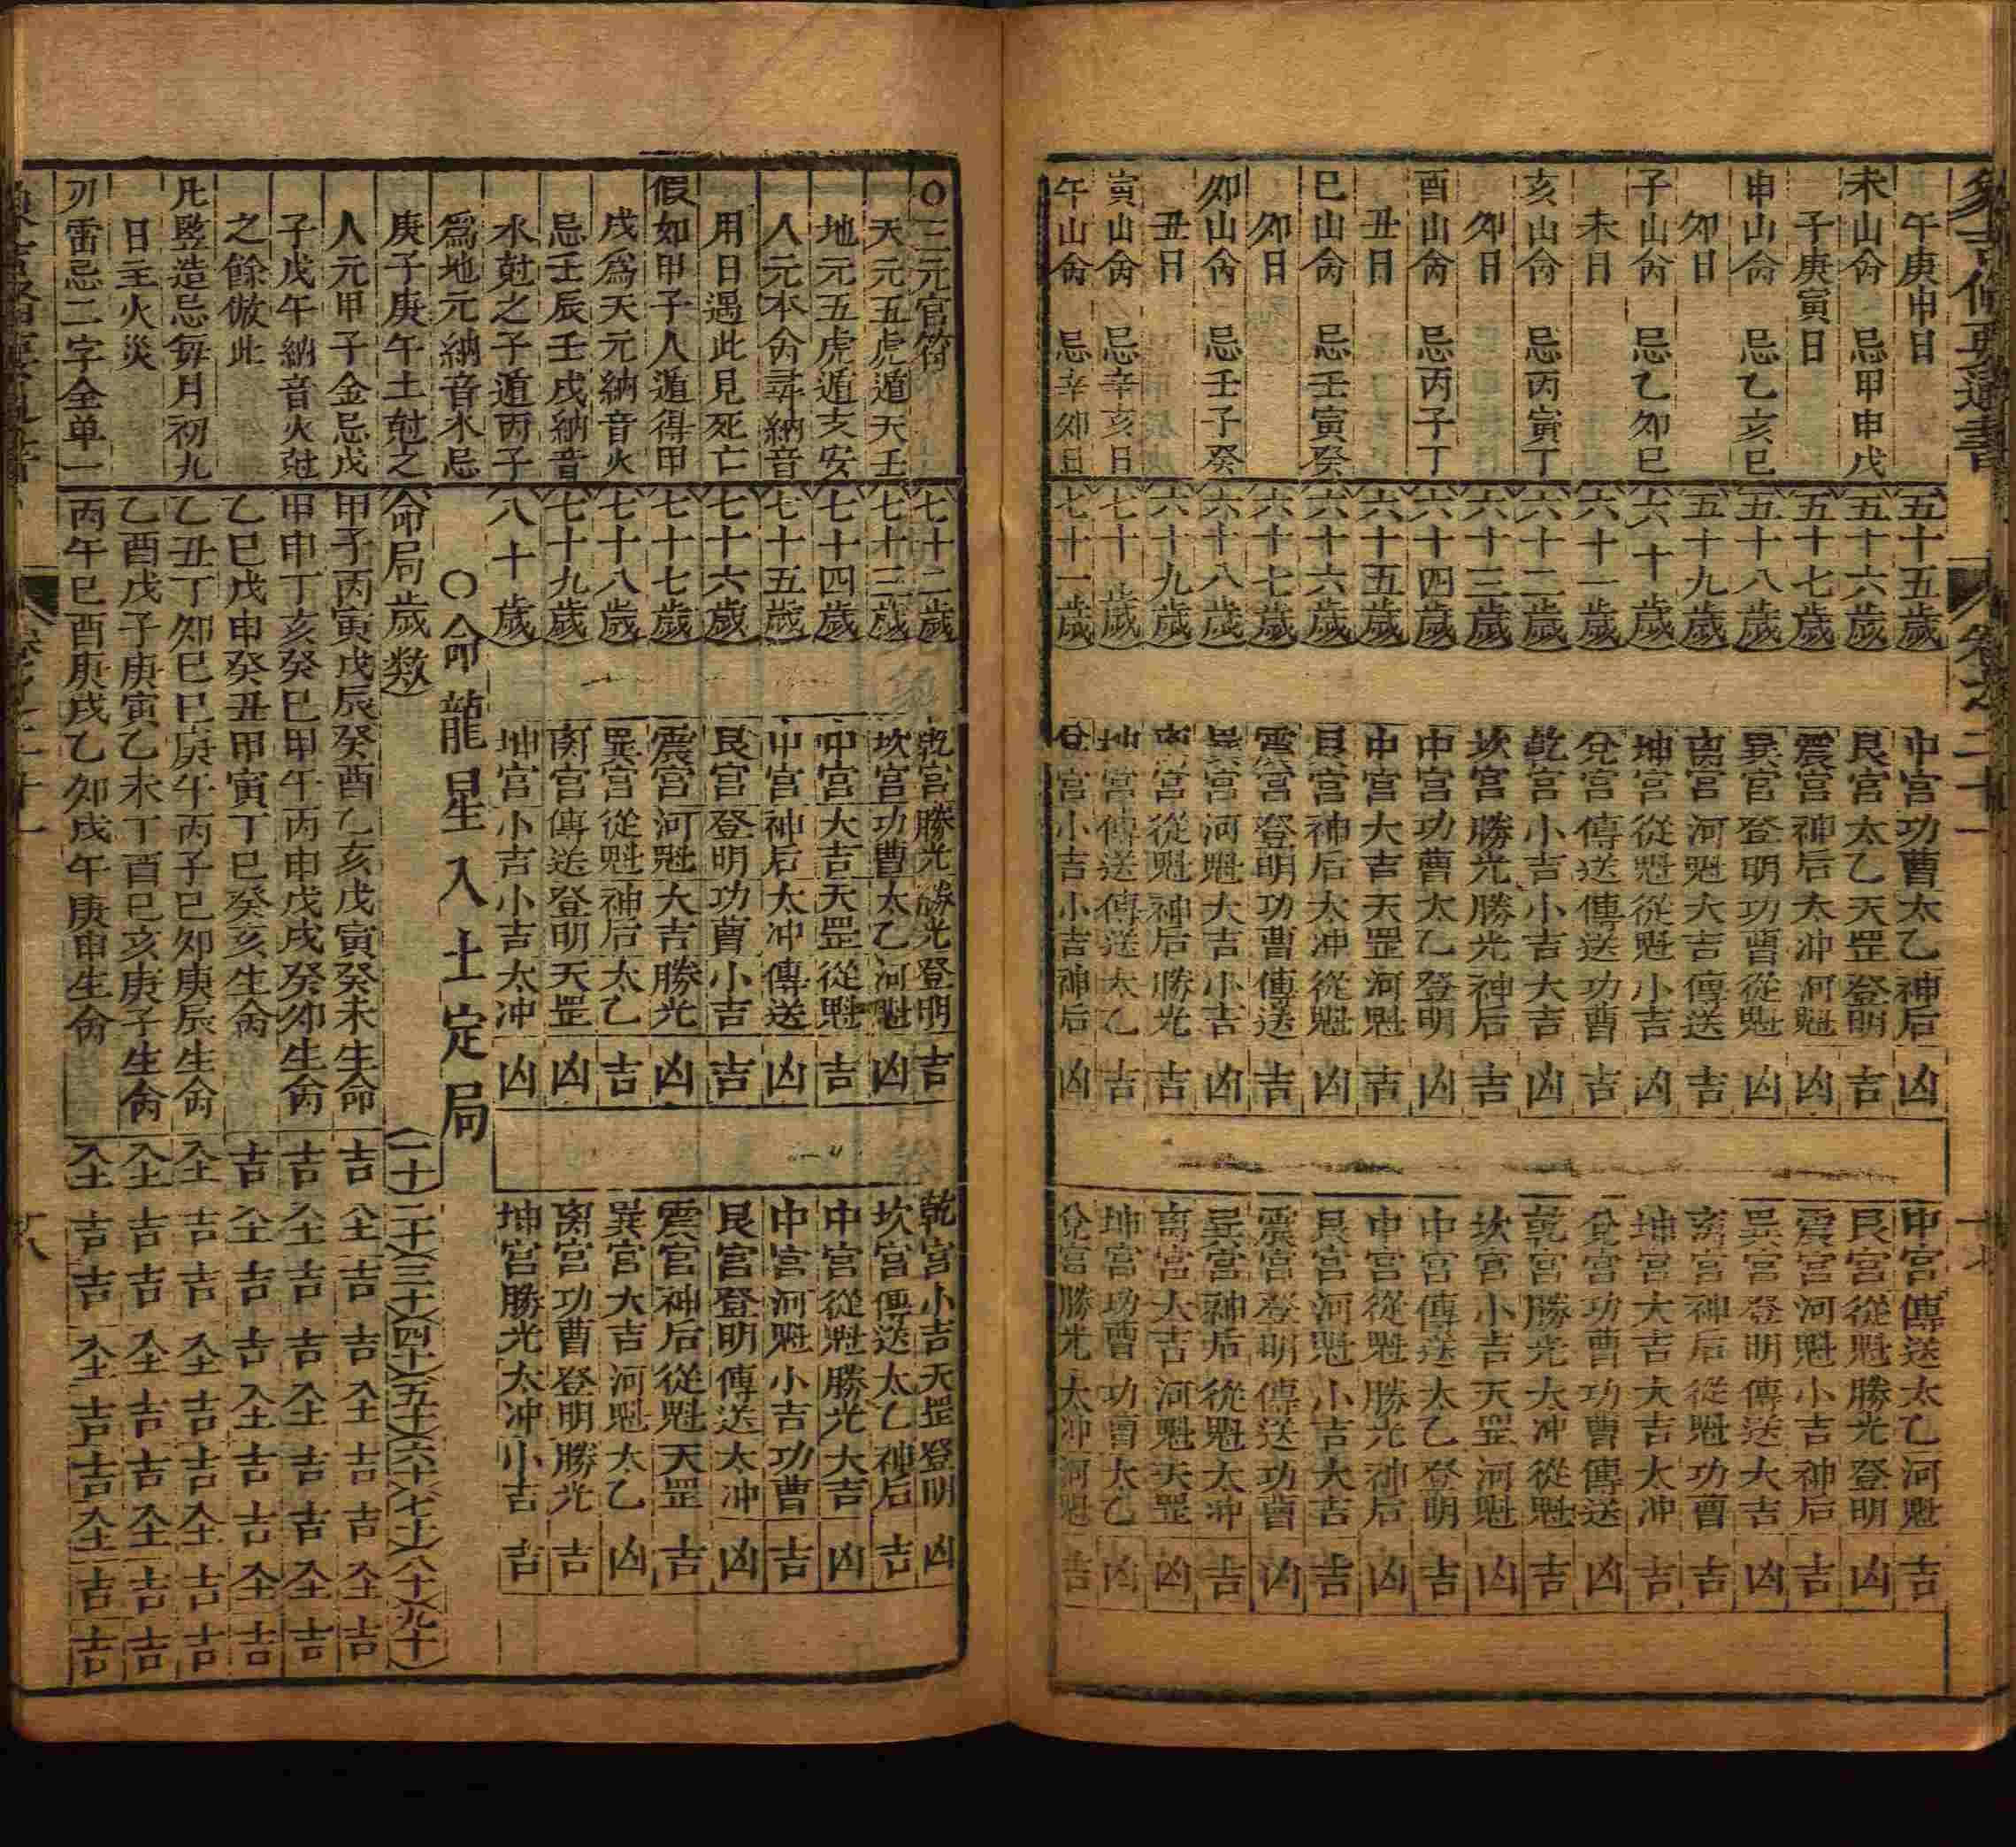 象吉備要通書
卷之二十一
午庚申日
未山命忌甲申戊
子庚寅日
申山命忌乙亥巳
卯日
子山命忌乙卯巳
未日
亥山命忌丙寅丁
卯日
酉山命忌丙子丁
丑日
巳山命忌壬寅癸
卯日
卯山命忌壬子癸
丑日
寅山命忌辛亥日
午山命忌辛卯日
五十五歲
五十六歲
五十七歲
五十八歲
五十九歲
六十歲
六十一歲
六十二歲
六十三歲
六十四歲
六十五歲
六十六歲
六十七歲
六十八歲
六十九歲
七十歲
七十一歲
中宮功曹太乙神后凶
艮宮太乙天罡登明吉
震宮神后太冲河魁凶
巽宮登明功曹從魁凶
离宮河魁大吉傳送吉
坤宮從魁從魁小吉凶
兌宮傳送傳送功曹吉
乾宮小吉小吉大吉凶
坎宮勝光勝光神后吉
中宮功曹太乙登明凶
中宮大吉天罡河魁吉
艮宮神后太冲從魁凶
震宮登明功曹傳送吉
巽宮河魁大吉小吉凶
离宮從魁神后勝光吉
坤宮傳送傳送太乙吉
兌宮小吉小吉神后凶
中宮傳送太乙河魁吉
艮宮從魁勝光登明凶
震宮河魁小吉神后吉
巽宮登明傳送大吉凶
离宮神后從魁功曹吉
坤宮大吉大吉太冲吉
兌宮功曹功曹傳送凶
乾宮勝光太冲從魁吉
坎宮小吉天罡河魁凶
中宮傳送太乙登明吉
中宮從魁勝光神后凶
艮宮河魁小吉大吉吉
震宮登明傳送功曹凶
巽宮神后從魁太冲吉
离宮大吉河魁天罡凶
坤宮功曹功曹太乙凶
兌宮勝光太冲河魁吉
○三元官符
天元五虎遁天壬
地元五虎遁支安
人元本命尋納音
用日遇此見死亡
假如甲子人遁得甲
戌爲天元納音火
忌壬辰壬戌納音
水尅之子遁丙子
爲地元納音水忌
庚子庚午土尅之
人元甲子金忌戊
子戊午納音火尅
之餘倣此
凡竪造忌每月初九
日主火災
刃雷忌二字全单一
七十二歲
七十三歲
七十四歲
七十五歲
七十六歲
七十七歲
七十八歲
七十九歲
八十歲
乾宮勝光勝光登明吉
坎宮功曹太乙河魁凶
中宮大吉天罡從魁吉
中宮神后太冲傳送凶
艮宮登明功曹小吉吉
震宮河魁大吉勝光凶
巽宮從魁神后太乙吉
离宮傳送登明天罡凶
坤宮小吉小吉太冲凶
乾宮小吉天罡登明凶
坎宮傳送太乙神后吉
中宮從魁勝光大吉凶
中宮河魁小吉功曹吉
艮宮登明傳送太冲凶
震宮神后從魁天罡吉
巽宮大吉河魁太乙凶
离宮功曹登明勝光吉
坤宮勝光太冲小吉吉
○命龍星入土定局
命局歲数 一十 二十 三十 四十 五十 六十 七十 八十 九十
甲子丙寅戊辰癸酉乙亥戊寅癸未生命 吉 入土 吉 吉 入土 吉 吉 入土 吉
甲申丁亥癸巳甲午丙申戊戌癸卯生命 吉 入土 吉 吉 入土 吉 吉 入土 吉
乙巳戊申癸丑甲寅丁巳癸亥生命 吉 入土 吉 吉 入土 吉 吉 入土 吉
乙丑丁卯巳巳庚午丙子巳卯庚辰生命 入土 吉 吉 入土 吉 吉 入土 吉 吉
乙酉戊子庚寅乙未丁酉巳亥庚子生命 入土 吉 吉 入土 吉 吉 入土 吉 吉
丙午巳酉庚戌乙卯戊午庚申生命 入土 吉 吉 入土 吉 吉 入土 吉 吉